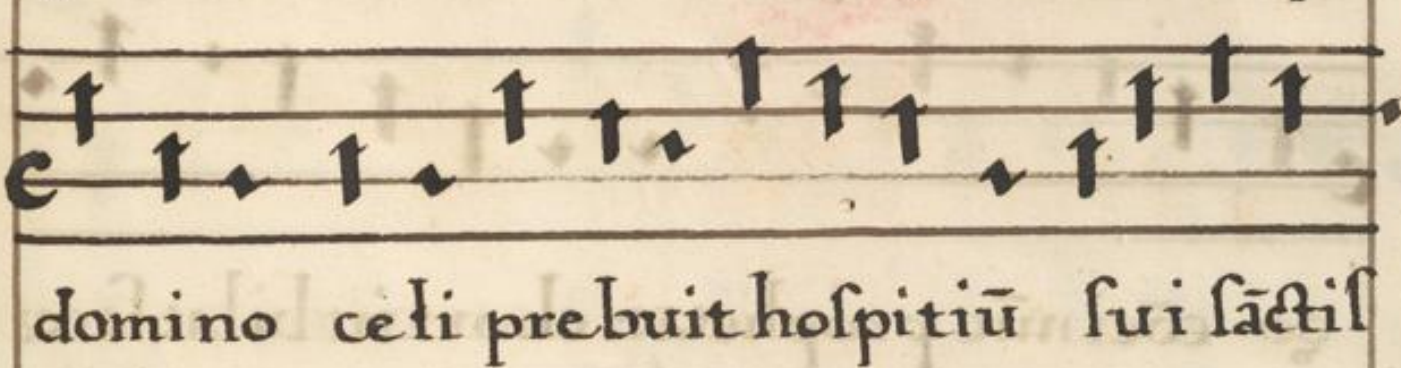 domino celi prebuit hoſpitiū ſui ſāctiſ